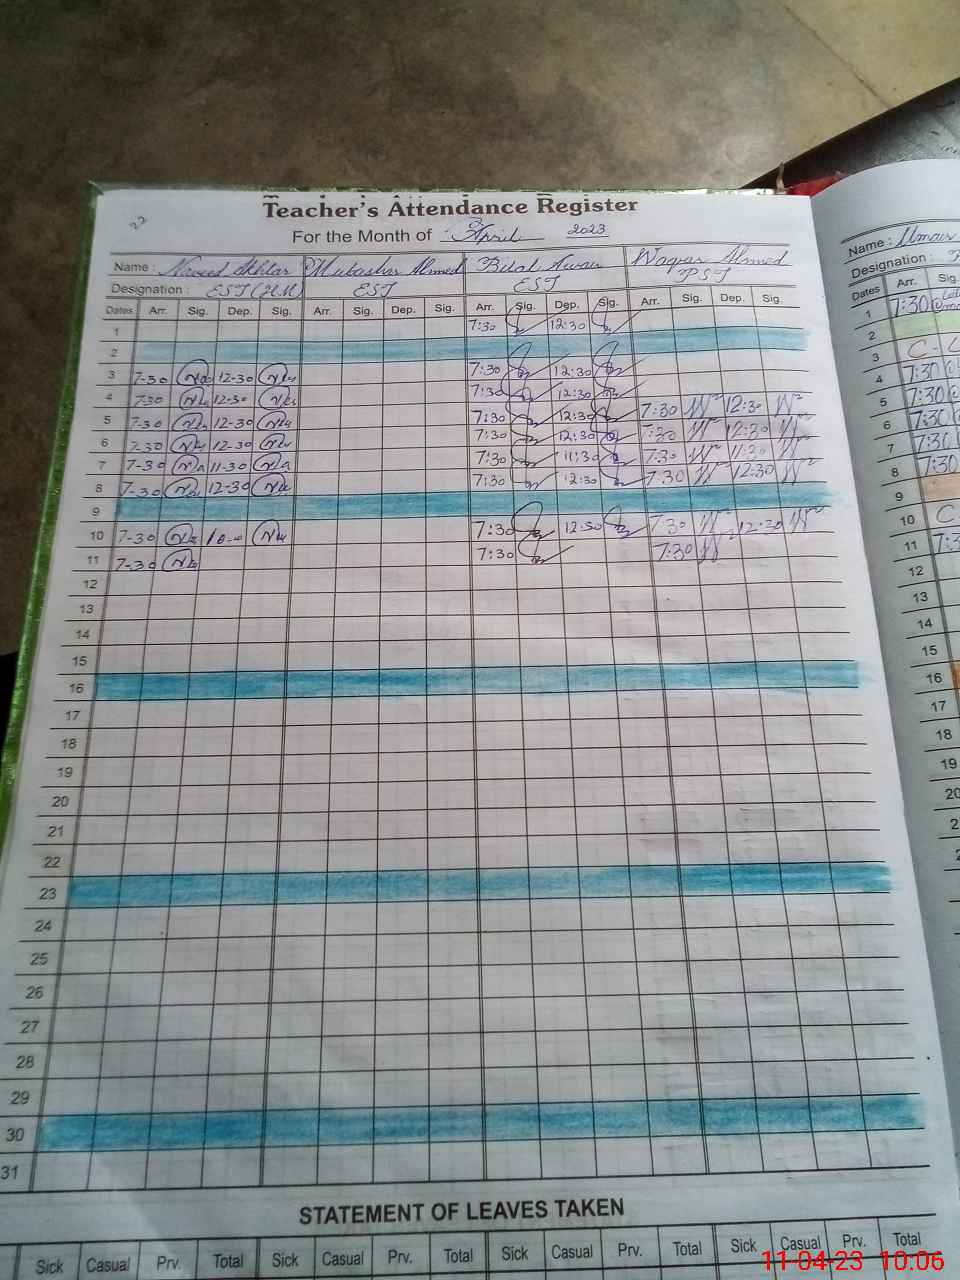 22
Teacher's Attendance Register
For the Month of April 2023
Name : Naveed Akhtar Mubashir Ahmed Bilal Awan Waqar Ahmed
Designation : EST (H.M) EST EST PST
Dates Arr. Sig. Dep. Sig. Arr. Sig. Dep. Sig. Arr. Sig. Dep. Sig. Arr. Sig. Dep. Sig.
1 7:30 12:30
2
3 7-30 12-30 7:30 12:30
4 7-30 12-30 7:30 12:30
5 7-30 12-30 7:30 12:30 7:30 12:30
6 7-30 12-30 7:30 12:30 7:30 12:30
7 7-30 11-30 7:30 11:30 7:30 11:30
8 7-30 12-30 7:30 12:30 7:30 12:30
9
10 7-30 7:30 12:30 7:30 12:30
11 7-30 7:30 7:30
12
13
14
15
16
17
18
19
20
21
22
23
24
25
26
27
28
29
30
31
STATEMENT OF LEAVES TAKEN
Sick Casual Prv. Total Sick Casual Prv. Total Sick Casual Prv. Total Sick Casual Prv. Total
Name : Umair
Designation :
Dates Arr. Sig.
1 7:30
2
3
4 7:30
5 7:30
6 7:30
7 7:30
8 7:30
9
10
11
12
13
14
15
16
17
18
19
20
11-04-23 10:06